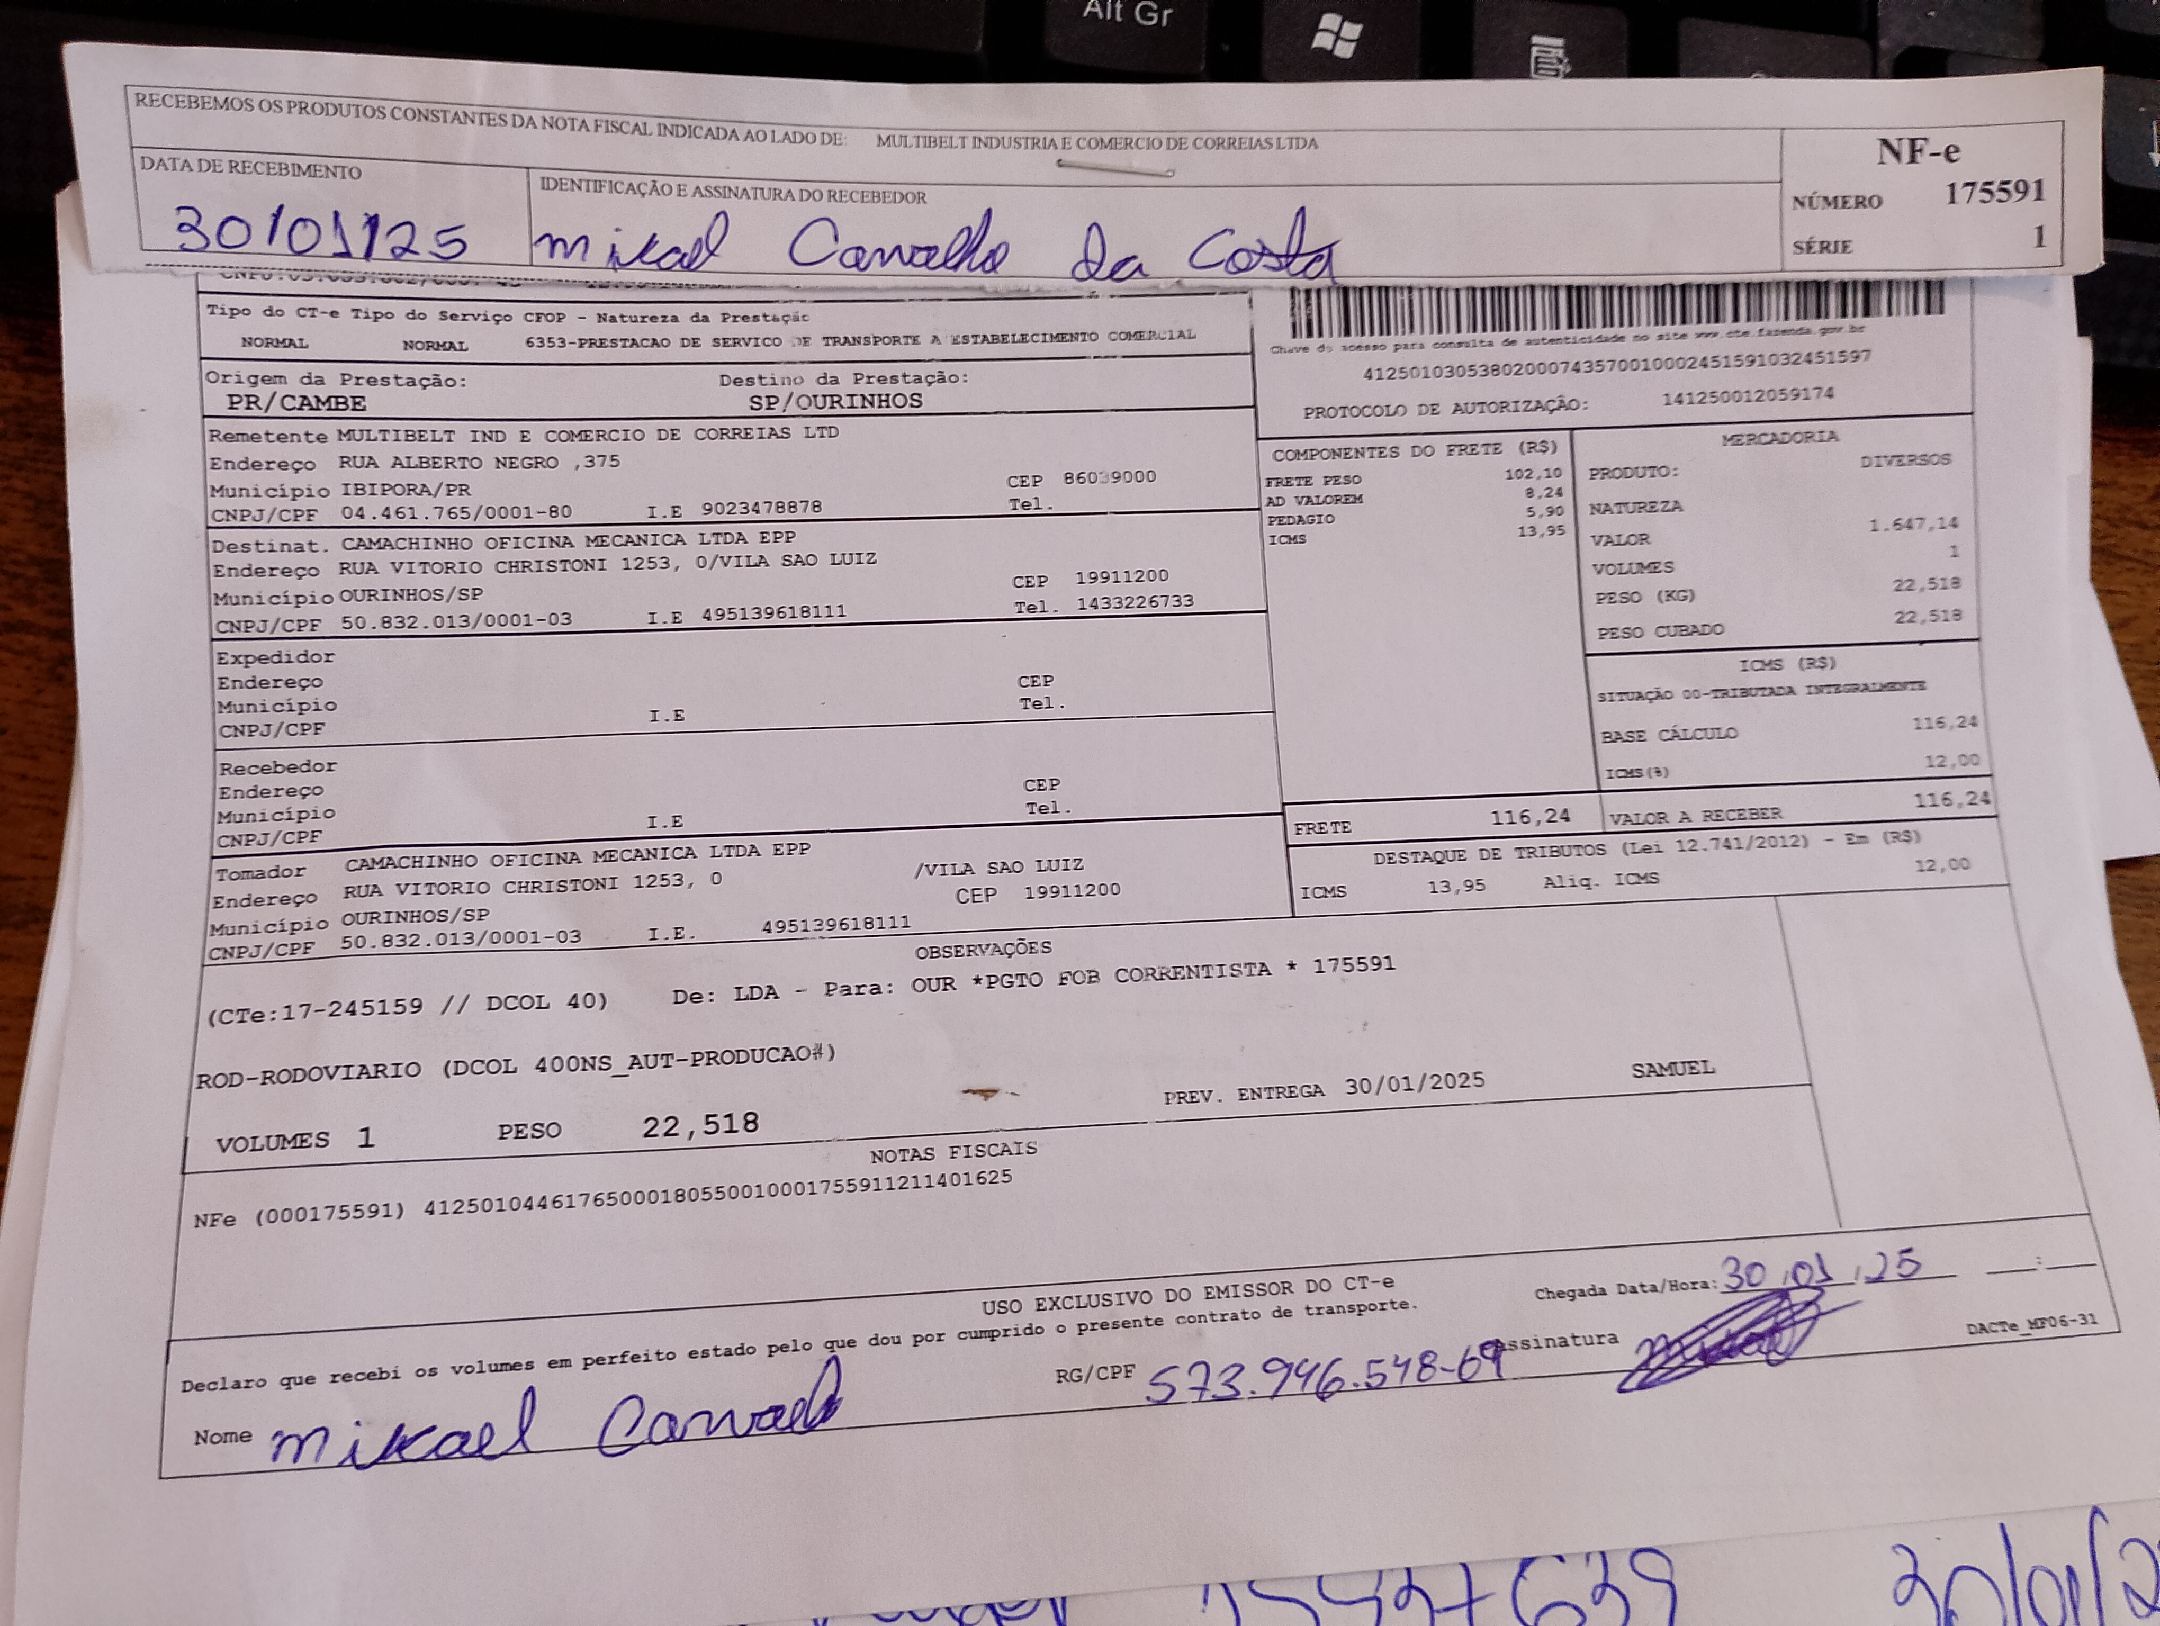 Alt Gr
RECEBEMOS OS PRODUTOS CONSTANTES DA NOTA FISCAL INDICADA AO LADO DE: MULTIBELT INDUSTRIA E COMERCIO DE CORREIAS LTDA
NF-e
NÚMERO 175591
SÉRIE 1
DATA DE RECEBIMENTO
30/01/25
IDENTIFICAÇÃO E ASSINATURA DO RECEBEDOR
Mikael Carvalho da Costa
Tipo do CT-e Tipo do Serviço CFOP - Natureza da Prestação
NORMAL NORMAL 6353-PRESTACAO DE SERVICO DE TRANSPORTE A ESTABELECIMENTO COMERCIAL
Origem da Prestação: Destino da Prestação:
PR/CAMBE SP/OURINHOS
Chave de acesso para consulta de autenticidade no site www.cte.fazenda.gov.br
41250103053802000743570010002451591032451597
PROTOCOLO DE AUTORIZAÇÃO: 141250012059174
Remetente MULTIBELT IND E COMERCIO DE CORREIAS LTD
Endereço RUA ALBERTO NEGRO ,375
Município IBIPORA/PR CEP 86039000
CNPJ/CPF 04.461.765/0001-80 I.E 9023478878 Tel.
Destinat. CAMACHINHO OFICINA MECANICA LTDA EPP
Endereço RUA VITORIO CHRISTONI 1253, 0/VILA SAO LUIZ
Município OURINHOS/SP CEP 19911200
CNPJ/CPF 50.832.013/0001-03 I.E 495139618111 Tel. 1433226733
Expedidor
Endereço CEP
Município Tel.
CNPJ/CPF I.E
Recebedor
Endereço CEP
Município Tel.
CNPJ/CPF I.E
Tomador CAMACHINHO OFICINA MECANICA LTDA EPP
Endereço RUA VITORIO CHRISTONI 1253, 0 /VILA SAO LUIZ
Município OURINHOS/SP CEP 19911200
CNPJ/CPF 50.832.013/0001-03 I.E. 495139618111
COMPONENTES DO FRETE (R$)
FRETE PESO 102,10
AD VALOREM 8,24
PEDAGIO 5,90
ICMS 13,95
MERCADORIA
PRODUTO: DIVERSOS
NATUREZA
VALOR 1.647,14
VOLUMES 1
PESO (KG) 22,518
PESO CUBADO 22,518
ICMS (R$)
SITUAÇÃO 00-TRIBUTADA INTEGRALMENTE
BASE CÁLCULO 116,24
ICMS(%) 12,00
FRETE 116,24 VALOR A RECEBER 116,24
DESTAQUE DE TRIBUTOS (Lei 12.741/2012) - Em (R$)
ICMS 13,95 Aliq. ICMS 12,00
OBSERVAÇÕES
(CTe:17-245159 // DCOL 40) De: LDA - Para: OUR *PGTO FOB CORRENTISTA * 175591
ROD-RODOVIARIO (DCOL 400NS_AUT-PRODUCAO#)
VOLUMES 1 PESO 22,518 PREV. ENTREGA 30/01/2025 SAMUEL
NOTAS FISCAIS
NFe (000175591) 41250104461765000180550010001755911211401625
USO EXCLUSIVO DO EMISSOR DO CT-e
Declaro que recebi os volumes em perfeito estado pelo que dou por cumprido o presente contrato de transporte.
Chegada Data/Hora: 30 01 25 :
Nome Mikael Carvalh RG/CPF 573.946.548-69 Assinatura
DACTe_MF06-31